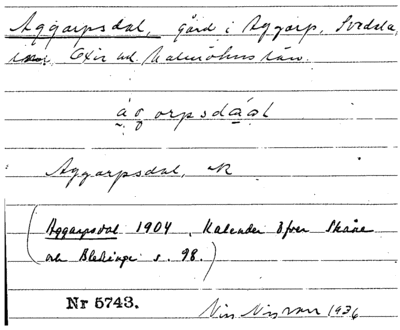 Aggarpsdal, gård i Aggarp, Svedala,
Oxie hd. Malmöhus län.
ág̣orpsdáal
Aggarpsdal, N
(Aggarpsdal 1904, Kalender öfver Skåne
och Blekinge s. 98.)
Nr 5743.
1936